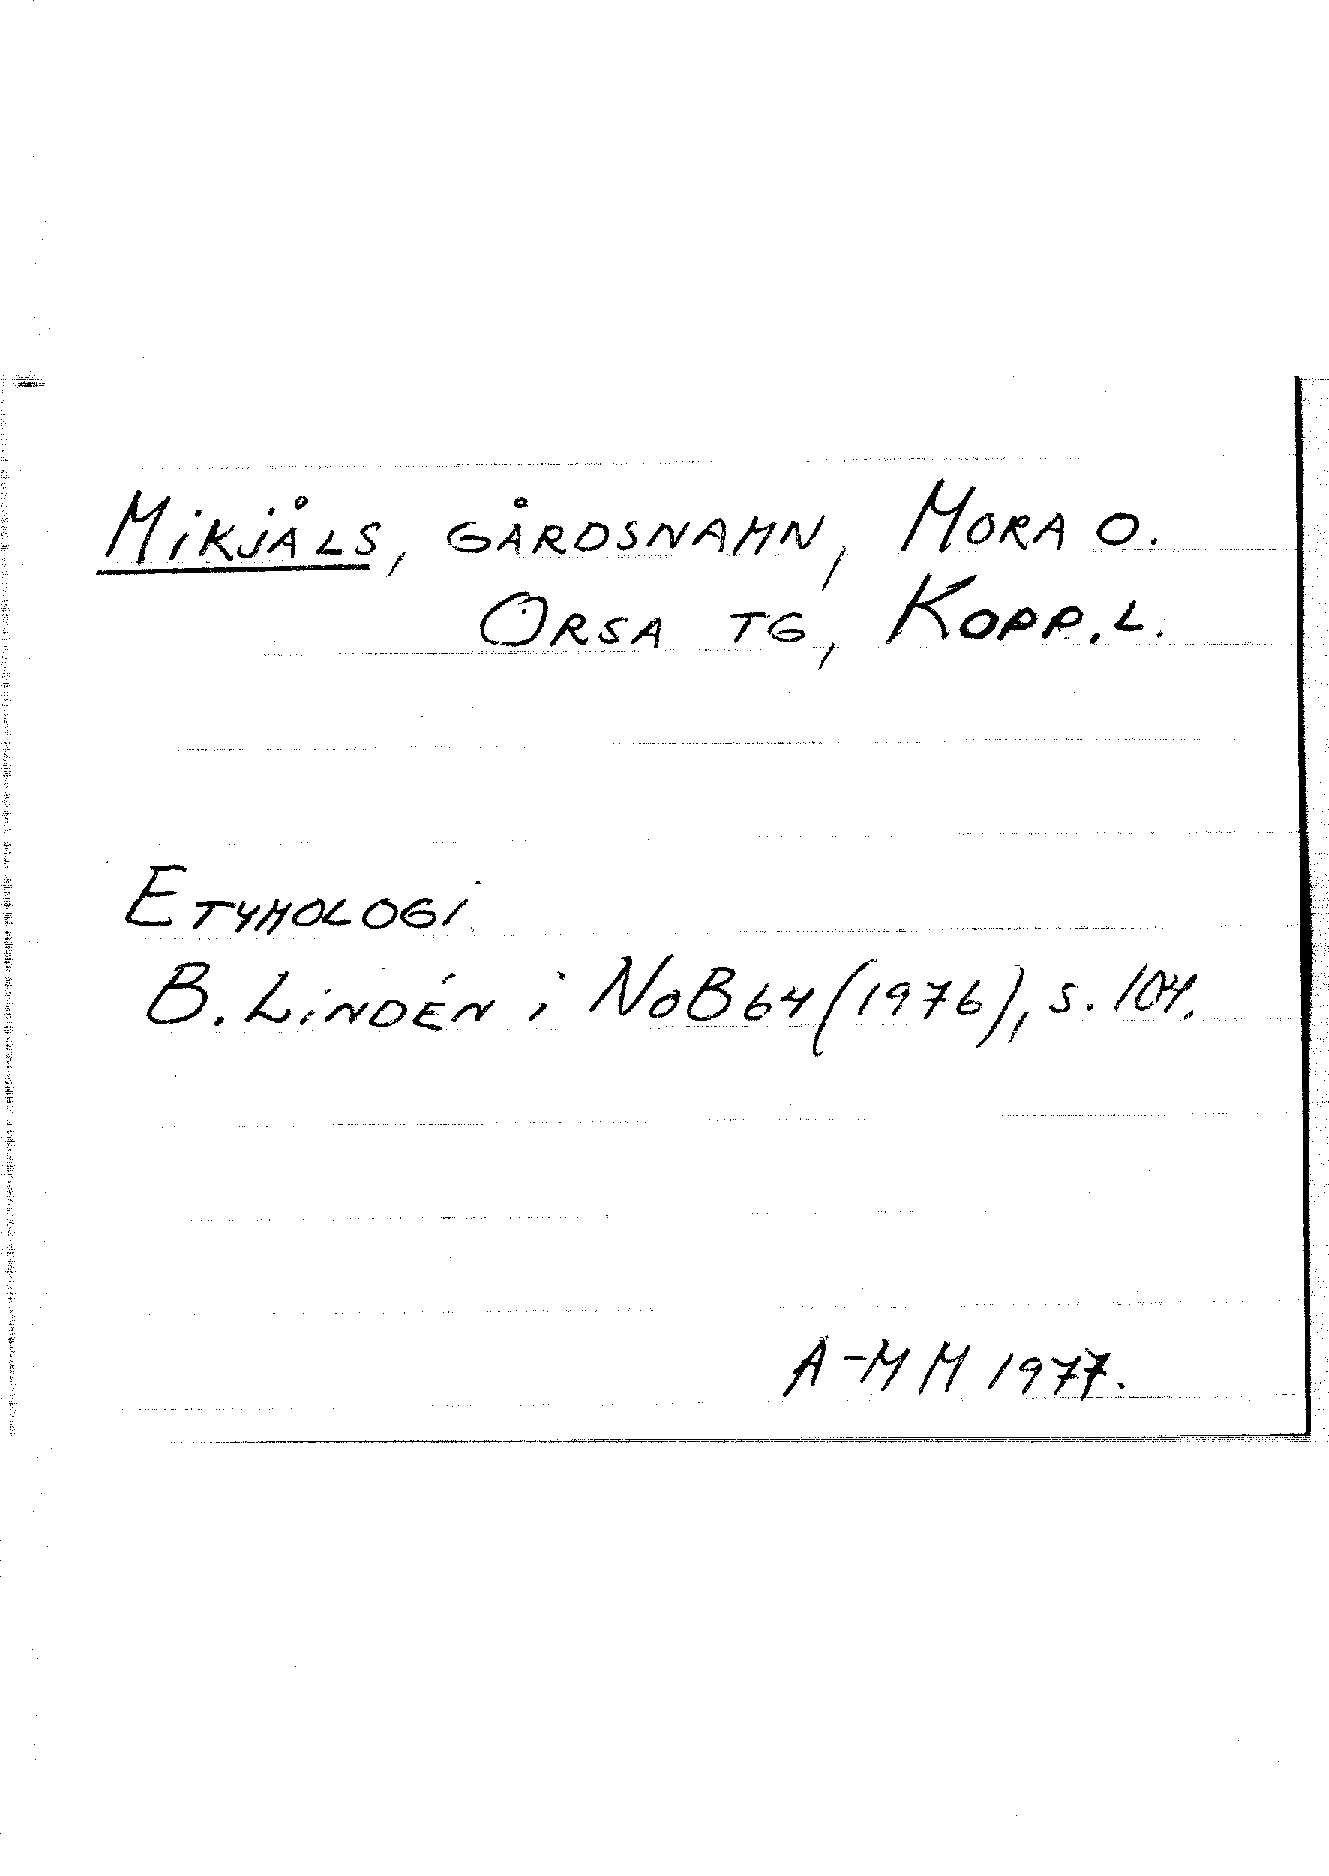 Mikjåls, gårdsnamn, Mora o.
Orsa tg, Kopp.l.
Etymologi
B. Lindén i NoB 64 (1976), s. 104.
A-MM 1977.